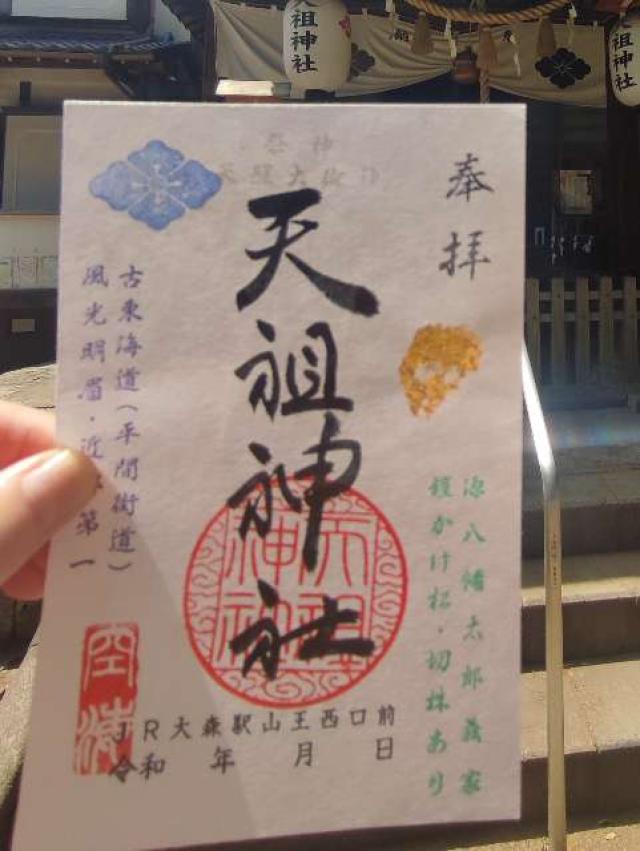 天祖神社
奉拝
祭神
天照大御神
天祖神社
源八幡太郎義家
鎧かけ松・切株あり
古東海道(平間街道)
風光明眉・近
第一
天祖神社
JR大森駅山王西口前
令和 年 月 日